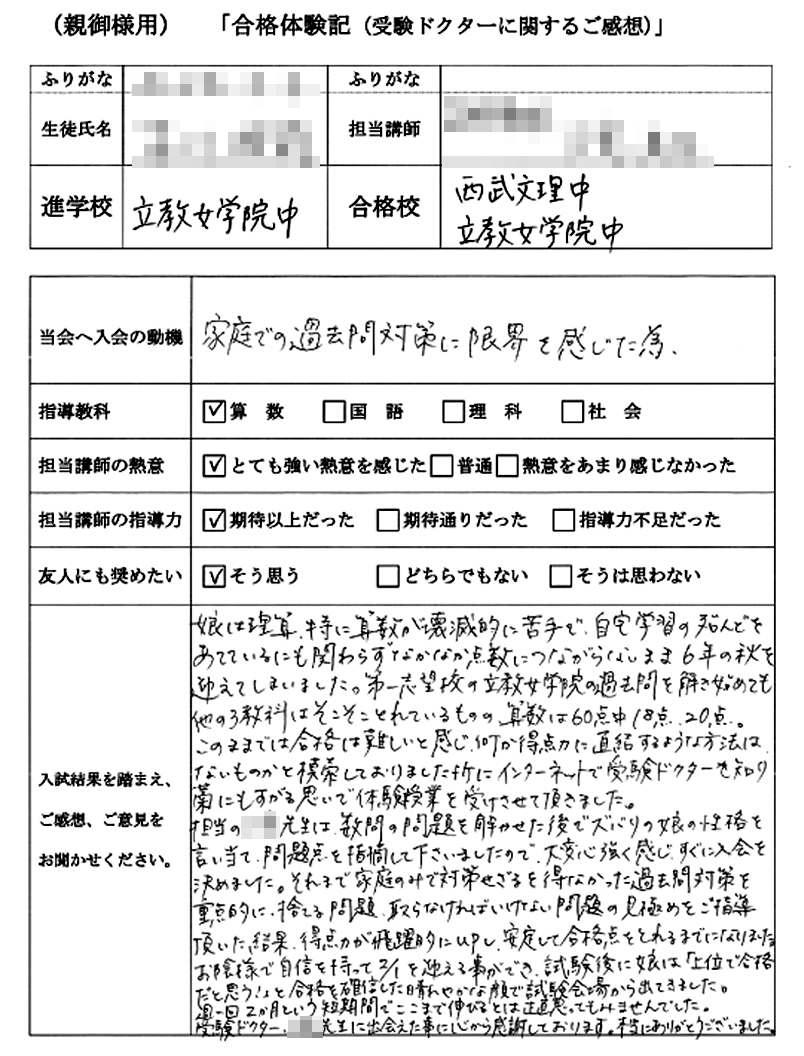 （親御様用）　「合格体験記（受験ドクターに関するご感想）」
ふりがな　ふりがな
生徒氏名　担当講師
進学校　立教女学院中　合格校　西武文理中
立教女学院中
当会へ入会の動機　家庭での過去問対策に限界を感じた為、
指導教科　☑算　数　□国　語　□理　科　□社　会
担当講師の熱意　☑とても強い熱意を感じた□普通□熱意をあまり感じなかった
担当講師の指導力　☑期待以上だった　□期待通りだった　□指導力不足だった
友人にも奨めたい　☑そう思う　□どちらでもない　□そうは思わない
入試結果を踏まえ、
ご感想、ご意見を
お聞かせください。
娘は理算、特に算数が壊滅的に苦手で、自宅学習の殆んどを
あてているにも関わらずなかなか点数につながらないまま6年の秋を
迎えてしまいました。第一志望校の立教女学院の過去問を解き始めても
他の3教科はそこそことれているものの、算数は60点中18点、20点。
このままでは合格は難しいと感じ、何か得点力に直結するような方法は
ないものかと模索しておりました折にインターネットで受験ドクターを知り
藁にもすがる思いで体験授業を受けさせて頂きました。
担当の　先生は、数問の問題を解かせた後でズバリの娘の性格を
言い当て、問題点を指摘して下さいましたので、大変心強く感じ、すぐに入会を
決めました。それまで家庭のみで対策せざるを得なかった過去問対策を
重点的に、捨てる問題、取らなければいけない問題の見極めをご指導
頂いた結果、得点力が飛躍的にUPし、安定して合格点をとれるまでになりました
お陰様で自信を持って2/1を迎える事ができ、試験後に娘は「上位で合格
だと思う！」と合格を確信した晴れやかな顔で試験会場から出てきました。
週一回2か月という短期間でここまで伸びるとは正直思ってもみませんでした。
受験ドクター、　先生に出会えた事に心から感謝しております。本当にありがとうございました。